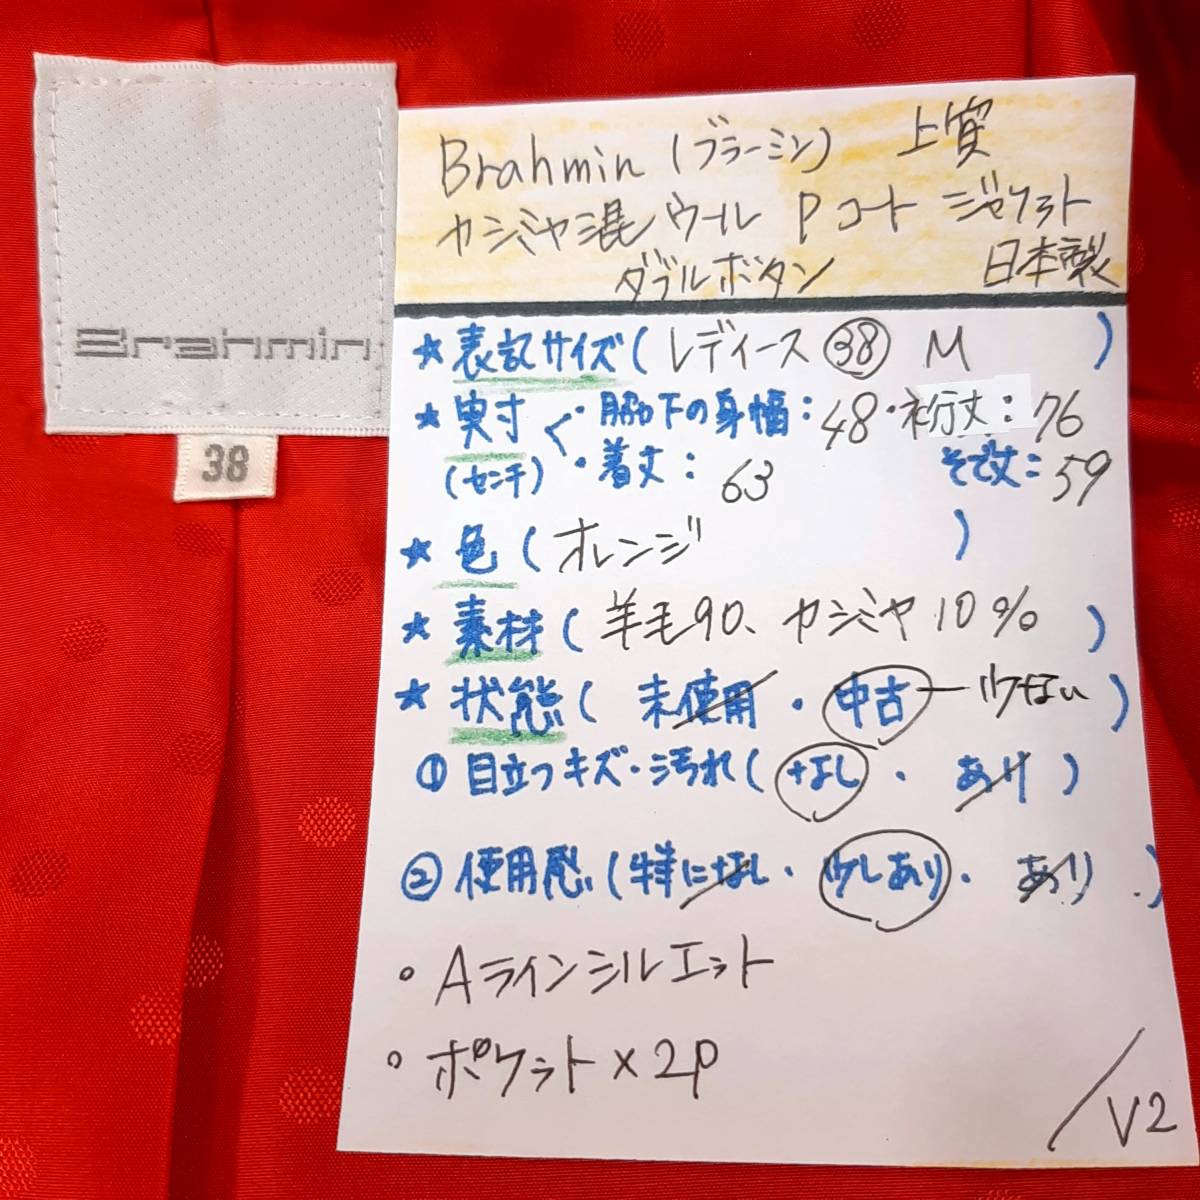 Brahmin
38
Brahmin (ブラーミン) 上質
カシミヤ混ウール Pコート ジャケット
ダブルボタン 日本製
★表記サイズ(レディース 38 M )
★実寸く・脇下の身幅:48・裄丈:76
(センチ)・着丈: 63 そで丈:59
★色(オレンジ )
★素材(羊毛90、カシミヤ10% )
★状態( 未使用・中古ー少ない )
①目立つキズ・汚れ(なし・あり)
②使用感(特になし・少しあり・あり.)
◦Aラインシルエット
◦ポケット×2P
/V2